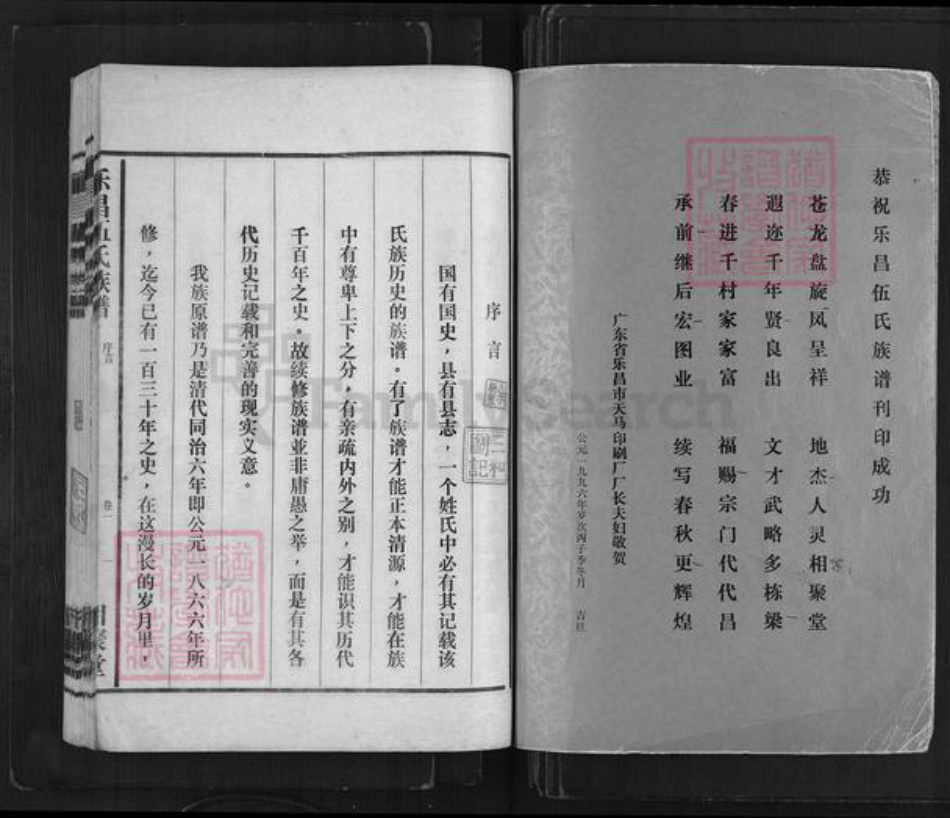 恭祝乐昌伍氏族谱刊印成功
苍龙盘旋凤呈祥 地杰人灵相聚堂
遐迩千年贤良出 文才武略多栋梁
春进千村家家富 福赐宗门代代昌
承前继后宏图业 续写春秋更辉煌
广东省乐昌市天马印刷厂厂长夫妇敬贺
公元一九九六年岁次丙子季冬月 吉旦
序言
国有国史，县有县志，一个姓氏中必有其记载该
氏族历史的族谱。有了族谱才能正本清源，才能在族
中有尊卑上下之分，有亲疏内外之别，才能识其历代
千百年之史。故续修族谱並非庸愚之举，而是有其各
代历史记载和完善的现实义意。
我族原谱乃是清代同治六年即公元一八六六年所
修，迄今已有一百三十年之史，在这漫长的岁月里，
乐昌伍氏族谱 序言 卷一 一
FamilySearch